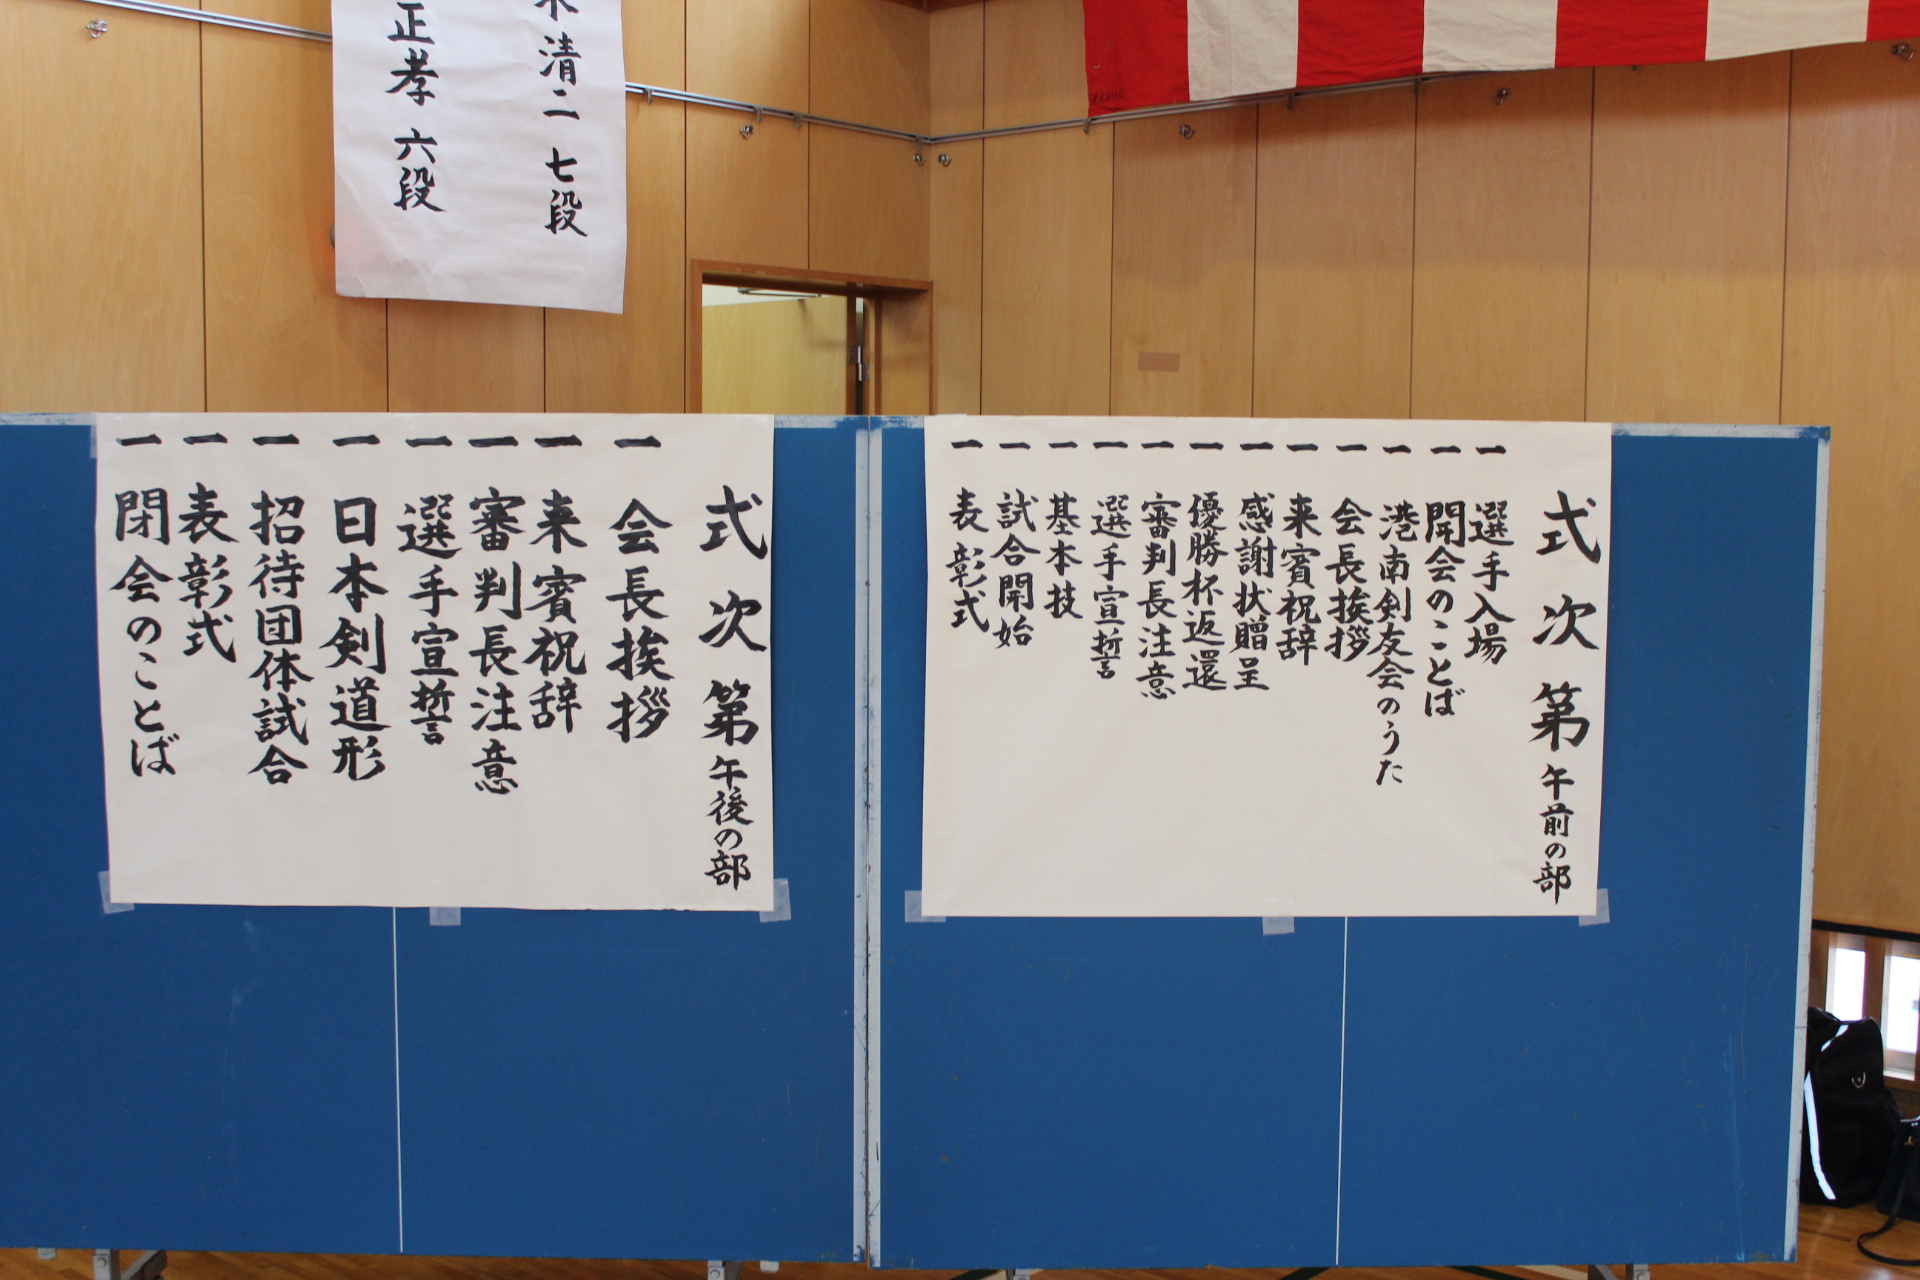 清二 七段
正孝 六段
式次第 午前の部
一 選手入場
一 開会のことば
一 港南剣友会のうた
一 会長挨拶
一 来賓祝辞
一 感謝状贈呈
一 優勝杯返還
一 審判長注意
一 選手宣誓
一 基本技
一 試合開始
一 表彰式
式次第 午後の部
一 会長挨拶
一 来賓祝辞
一 審判長注意
一 選手宣誓
一 日本剣道形
一 招待団体試合
一 表彰式
一 閉会のことば